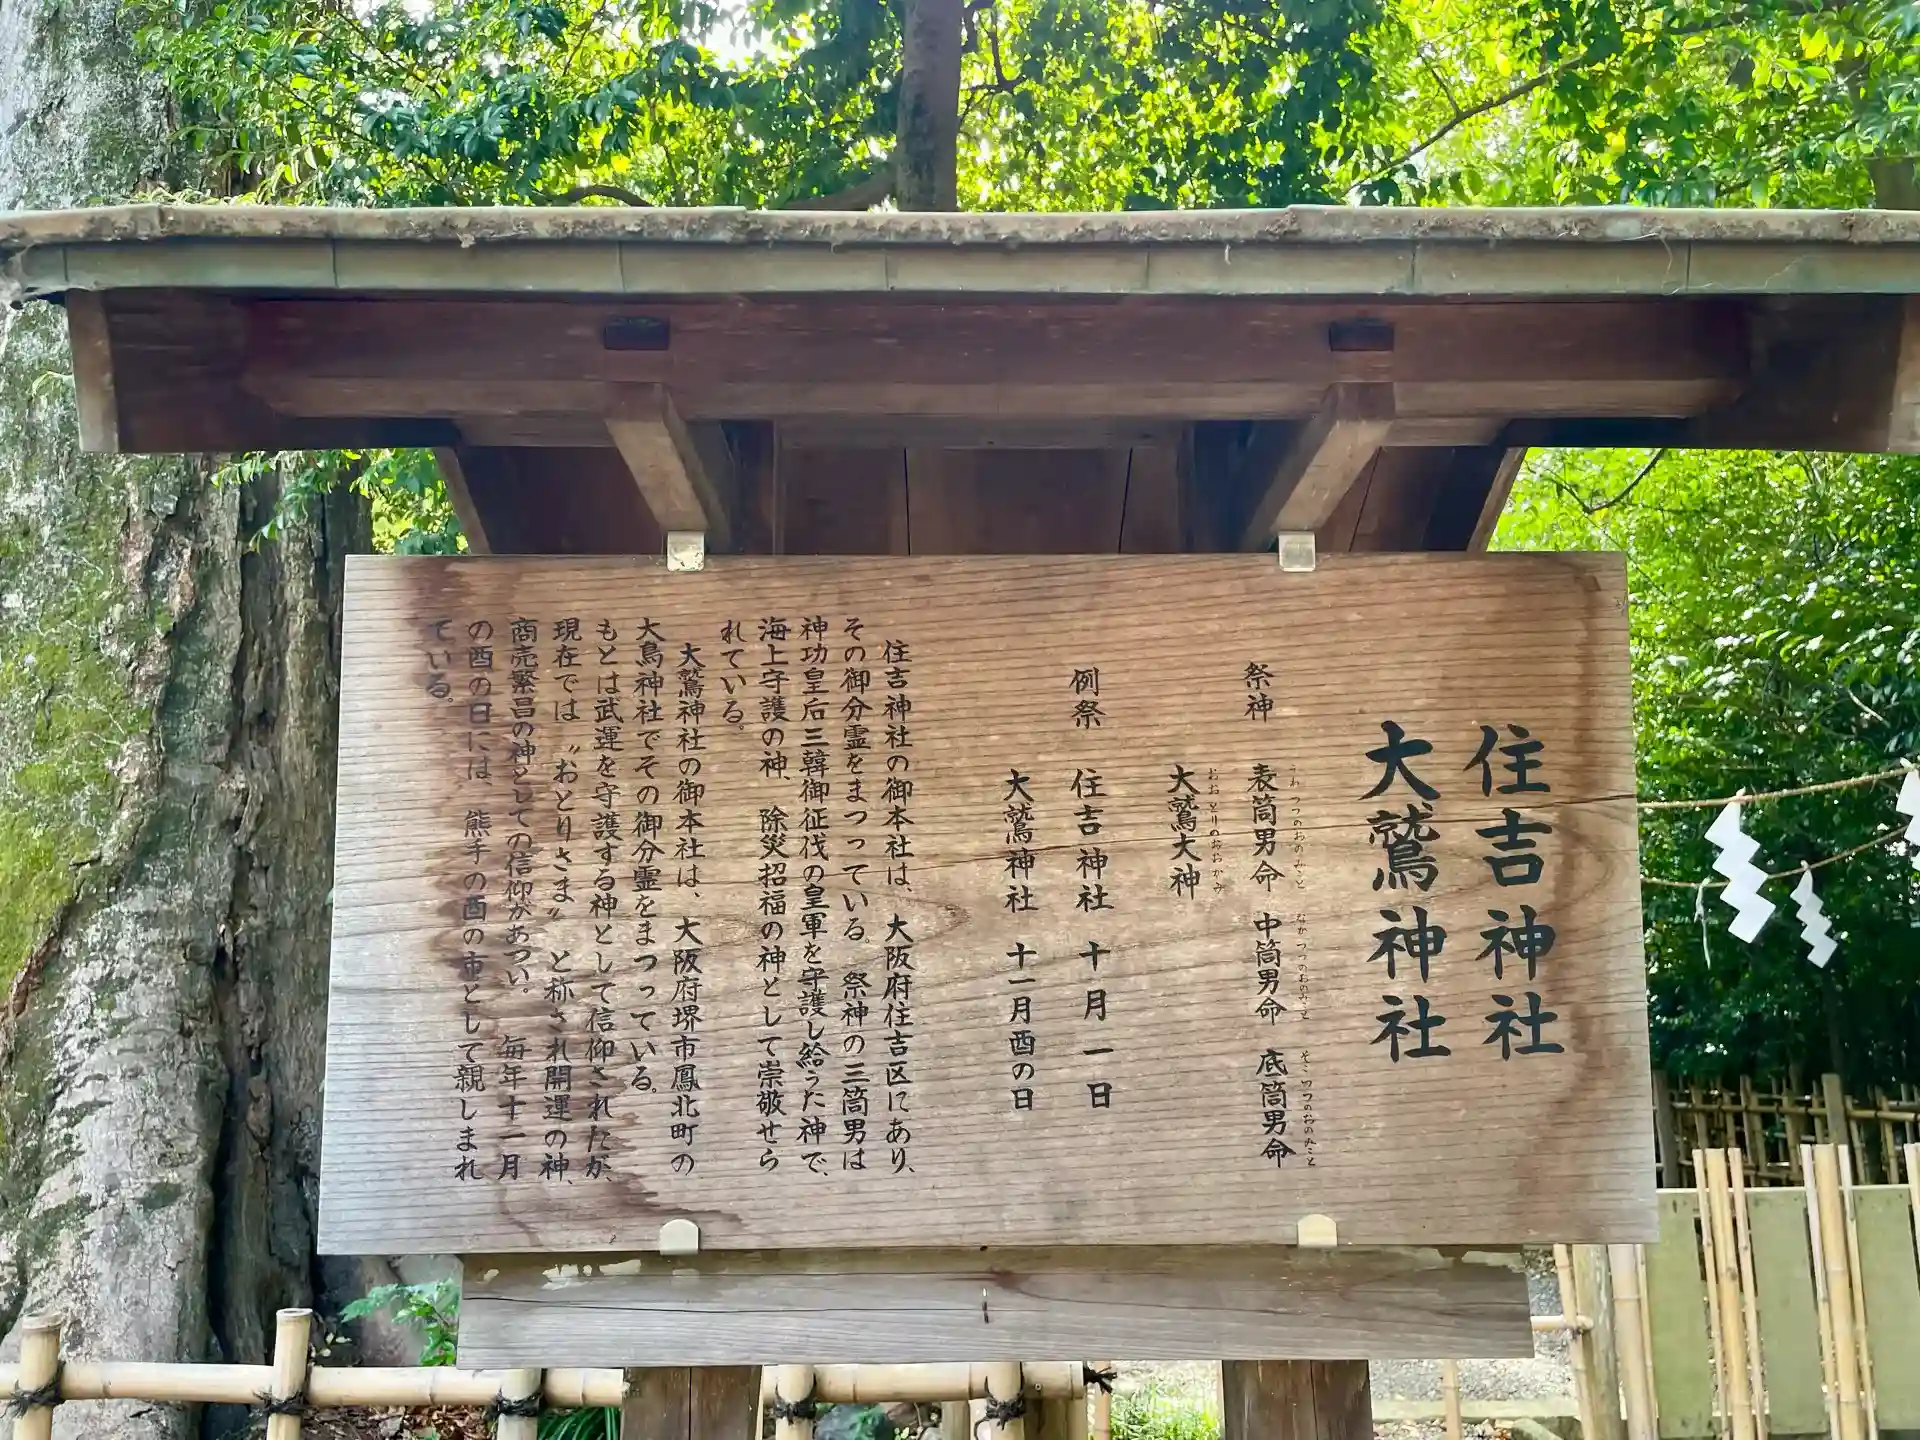 住吉神社
大鷲神社
祭神　表筒男命　中筒男命　底筒男命
うわつつのおのみこと　なかつつのおのみこと　そこつつのおのみこと
大鷲大神
おおとりのおおかみ
例祭　住吉神社　十月一日
大鷲神社　十一月酉の日
住吉神社の御本社は、大阪府住吉区にあり、
その御分霊をまつっている。祭神の三筒男は
神功皇后三韓御征伐の皇軍を守護し給うた神で、
海上守護の神、除災招福の神として崇敬せら
れている。
大鷲神社の御本社は、大阪府堺市鳳北町の
大鳥神社でその御分霊をまつっている。
もとは武運を守護する神として信仰されたが、
現在では〝おとりさま〟と称され開運の神、
商売繁昌の神としての信仰があつい。毎年十一月
の酉の日には、熊手の酉の市として親しまれ
ている。